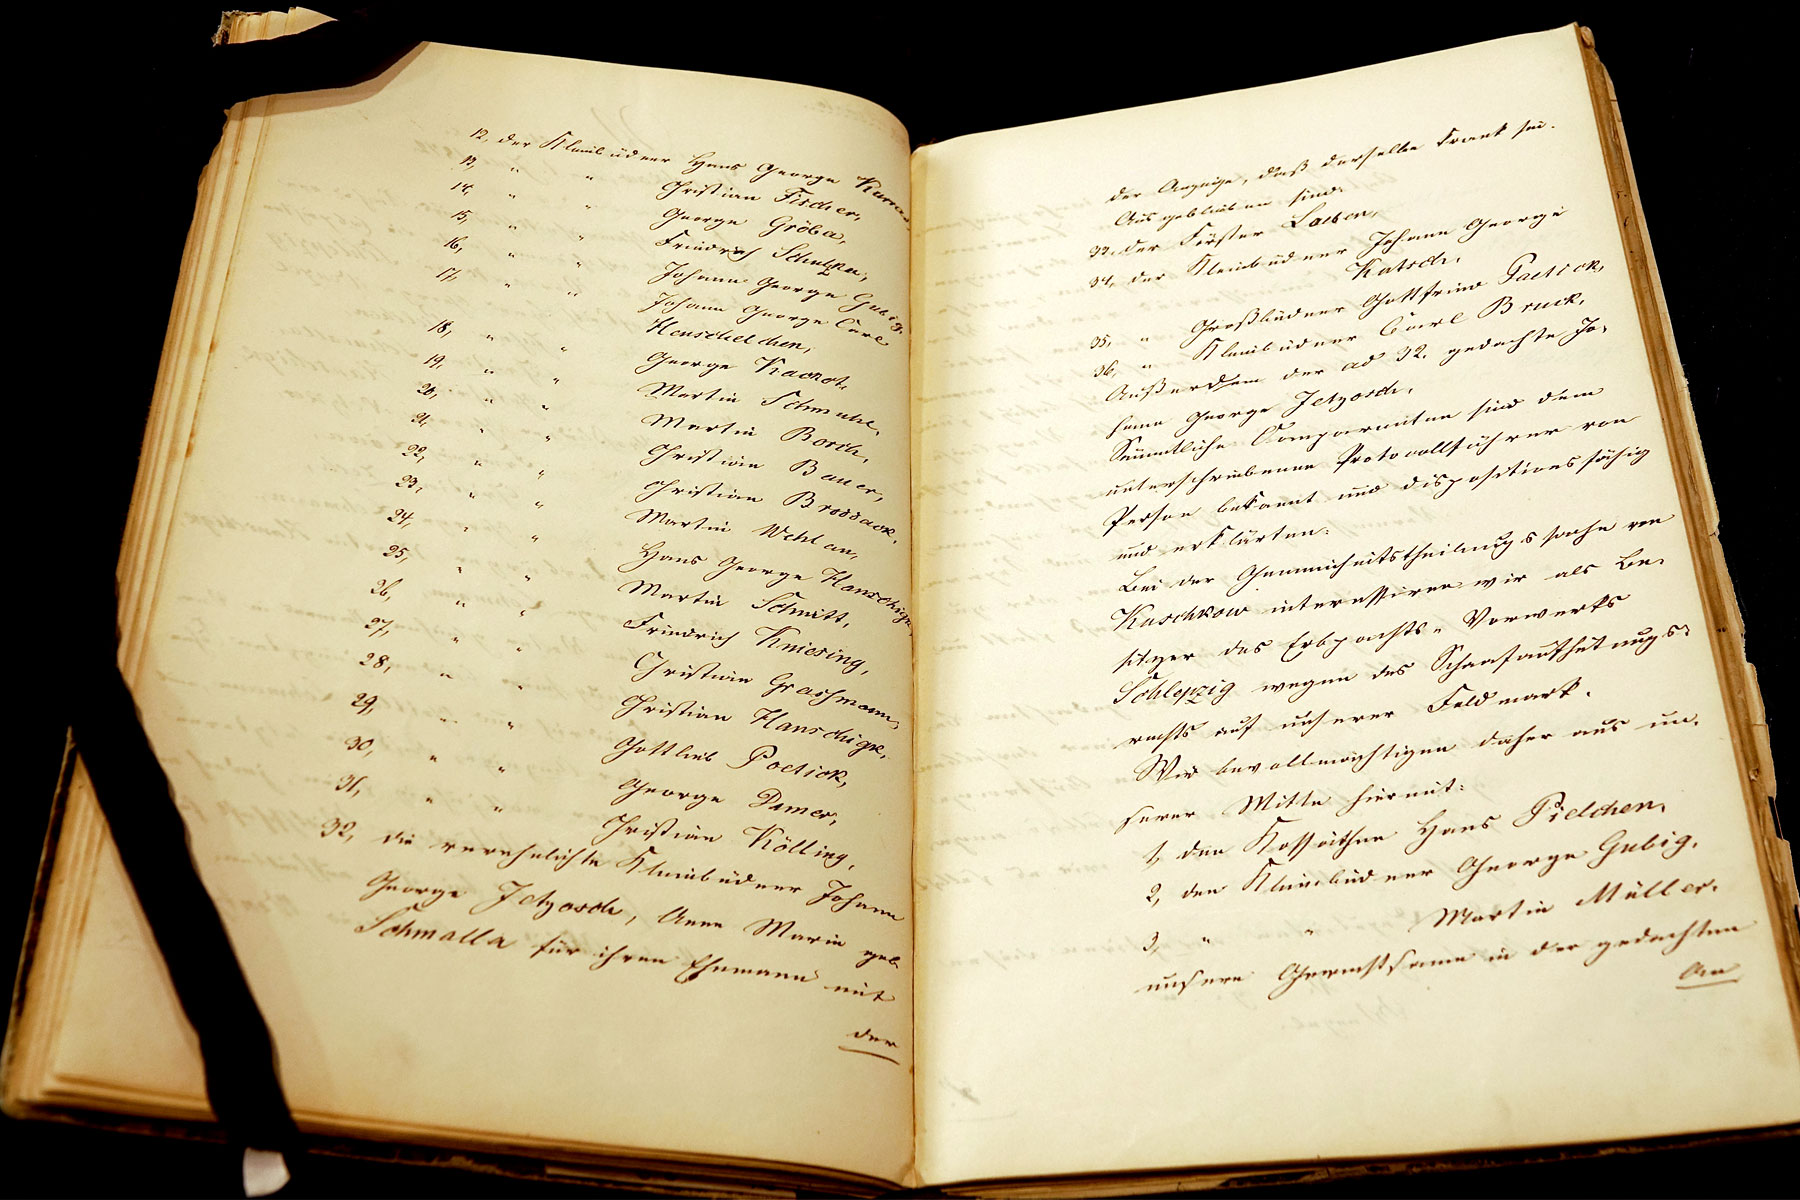 12, der Kleinbüdner Hans George Kurras,
13, " " Christian Fischer,
14, " " George Gröba,
15, " " Friedrich Schulze,
16, " " Johann George Gubig,
17, " " Johann George Carl
Henschelchen,
18, " " George Kaczot,
19, " " Martin Schmule,
20, " " Martin Borch,
21, " " Christian Bauer,
22, " " Christian Brossack,
23, " " Martin Wehlan,
24, " " Hans George Hanschigk,
25, " " Martin Schmitt,
26, " " Friedrich Kniesing,
27, " " Christian Grassmann,
28, " " Christian Hanschigk,
29, " " Gottlieb Poetick,
30, " " George Damer,
31, " " Christian Kölling,
32, die verehelichte Kleinbüdner Johann
George Jetzosch, Anne Marie geb.
Schmalla für ihren Ehemann mit
der
der Anzeige, daß derselbe krank sei.
Ausgeblieben sind:
33, der Förster
34, der Kleinbüdner Johann George
Katsch.
35, " Großbüdner Gottfried Paetick,
36, " Kleinbüdner Carl Bruck,
Außerdem der ad 32. gedachte Jo-
hann George Jetzosch.
Sämmtliche Comparenten sind dem
unterschriebenen Protocollführer von
Person bekannt und dispositionsfähig
und erklärten:
Bei der Gemeinheitstheilungssache von
Kuschkow interessiren wir als Be-
sitzer des Erbpachts-Vorwerks
Schlepzig wegen des Schaafaufhütungs-
rechts auf unserer Feldmark.
Wir bevollmächtigen daher aus un-
serer Mitte hiermit:
1, den Kossäthen Hans Pielchen,
2, den Kleinbüdner George Gubig,
3, " " Martin Müller.
unsere Gerechtsame in der gedachten
An